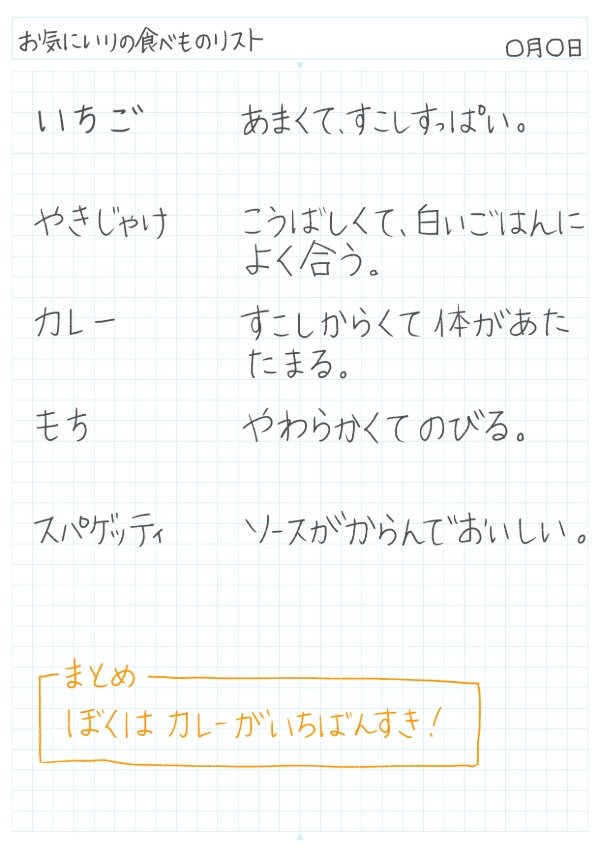 お気にいりの食べものリスト
〇月〇日
いちご あまくて、すこしすっぱい。
やきじゃけ こうばしくて、白いごはんに
よく合う。
カレー すこしからくて体があた
たまる。
もち やわらかくてのびる。
スパゲッティ ソースがからんでおいしい。
まとめ
ぼくはカレーがいちばんすき！